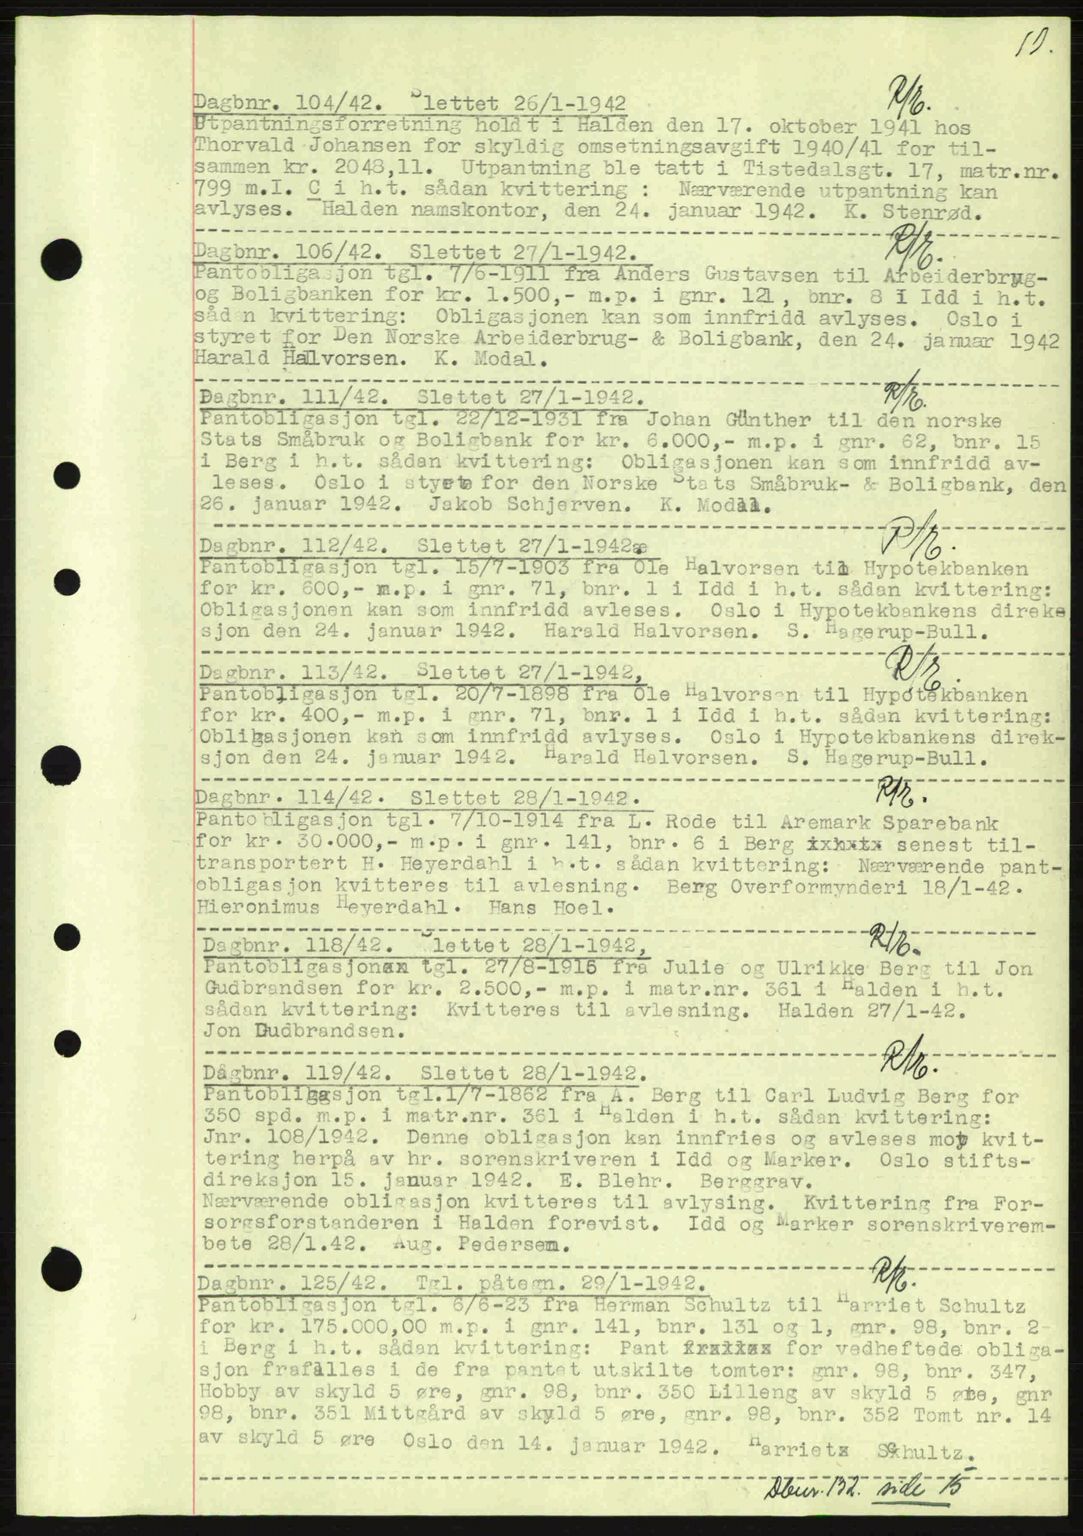 Dagbnr. 104/42. Slettet 26/1-1942 R/R.
Utpantningsforretning holdt i Halden den 17. oktober 1941 hos
Thorvald Johansen for skyldig omsetningsavgift 1940/41 for til-
sammen kr. 2048,11. Utpantning ble tatt i Tistedalsgt. 17, matr.nr.
799 m.I. C i h.t. sådan kvittering : Nærværende utpantning kan
avlyses. Halden namskontor, den 24. januar 1942. K. Stenrød.
Dagbnr. 106/42. Slettet 27/1-1942. R/R.
Pantobligasjon tgl. 7/6-1911 fra Anders Gustavsen til Arbeiderbrug-
og Boligbanken for kr. 1.500,- m.p. i gnr. 121, bnr. 8 I Idd i h.t.
sådan kvittering: Obligasjonen kan som innfridd avlyses. Oslo i
styret for Den Norske Arbeiderbrug- & Boligbank, den 24. januar 1942
Harald Halvorsen. K. Modal.
Dagbnr. 111/42. Slettet 27/1-1942. R/R.
Pantobligasjon tgl. 22/12-1931 fra Johan Günther til den norske
Stats Småbruk og Boligbank for kr. 6.000,- m.p. i gnr. 62, bnr. 15
i Berg i h.t. sådan kvittering: Obligasjonen kan som innfridd av-
leses. Oslo i styret for den Norske Stats Småbruk- & Boligbank, den
26. januar 1942. Jakob Schjerven. K. Modal.
Dagbnr. 112/42. Slettet 27/1-1942 R/R.
Pantobligasjon tgl. 15/7-1903 fra Ole Halvorsen til Hypotekbanken
for kr. 600,- m.p. i gnr. 71, bnr. 1 i Idd i h.t. sådan kvittering:
Obligasjonen kan som innfridd avleses. Oslo i Hypotekbankens direke
sjon den 24. januar 1942. Harald Halvorsen. S. Hagerup-Bull.
Dagbnr. 113/42. Slettet 27/1-1942, R/R.
Pantobligasjon tgl. 20/7-1898 fra Ole Halvorsen til Hypotekbanken
for kr. 400,- m.p. i gnr. 71, bnr. 1 i Idd i h.t. sådan kvittering:
Obligasjonen kan som innfridd avlyses. Oslo i Hypotekbankens direk-
sjon den 24. januar 1942. Harald Halvorsen. S. Hagerup-Bull.
Dagbnr. 114/42. Slettet 28/1-1942. R/R.
Pantobligasjon tgl. 7/10-1914 fra L. Rode til Aremark Sparebank
for kr. 30.000,- m.p. i gnr. 141, bnr. 6 i Berg senest til-
transportert H. Heyerdahl i h.t. sådan kvittering: Nærværende pant-
obligasjon kvitteres til avlesning. Berg Overformynderi 18/1-42.
Hieronimus Heyerdahl. Hans Hoel.
Dagbnr. 118/42. Slettet 28/1-1942, R/R.
Pantobligasjon tgl. 27/8-1915 fra Julie og Ulrikke Berg til Jon
Gudbrandsen for kr. 2.500,- m.p. i matr.nr. 361 i Halden i h.t.
sådan kvittering: Kvitteres til avlesning. Halden 27/1-42.
Jon Gudbrandsen.
Dagbnr. 119/42. Slettet 28/1-1942. R/R.
Pantobligasjon tgl.1/7-1862 fra A. Berg til Carl Ludvig Berg for
350 spd. m.p. i matr.nr. 361 i Halden i h.t. sådan kvittering:
Jnr. 108/1942. Denne obligasjon kan innfries og avleses mot kvit-
tering herpå av hr. sorenskriveren i Idd og Marker. Oslo stifts-
direksjon 15. januar 1942. E. Blehr. Berggrav.
Nærværende obligasjon kvitteres til avlysing. Kvittering fra For-
sorgsforstanderen i Halden forevist. Idd og Marker sorenskriverem-
bete 28/1.42. Aug. Pedersen.
Dagbnr. 125/42. Tgl. påtegn. 29/1-1942. R/R.
Pantobligasjon tgl. 6/6-23 fra Herman Schultz til Harriet Schultz
for kr. 175.000,00 m.p. i gnr. 141, bnr. 131 og 1, gnr. 98, bnr. 2
i Berg i h.t. sådan kvittering: Pant for vedheftede obliga-
sjon frafalles i de fra pantet utskilte tomter: gnr. 98, bnr. 347,
Hobby av skyld 5 øre, gnr. 98, bnr. 350 Lilleng av skyld 5 øre, gnr
98, bnr. 351 Mittgård av skyld 5 øre, gnr. 98, bnr. 352 Tomt nr. 14
av skyld 5 øre Oslo den 14. januar 1942. Harriet Schultz.
Dbnr. 132. side 15